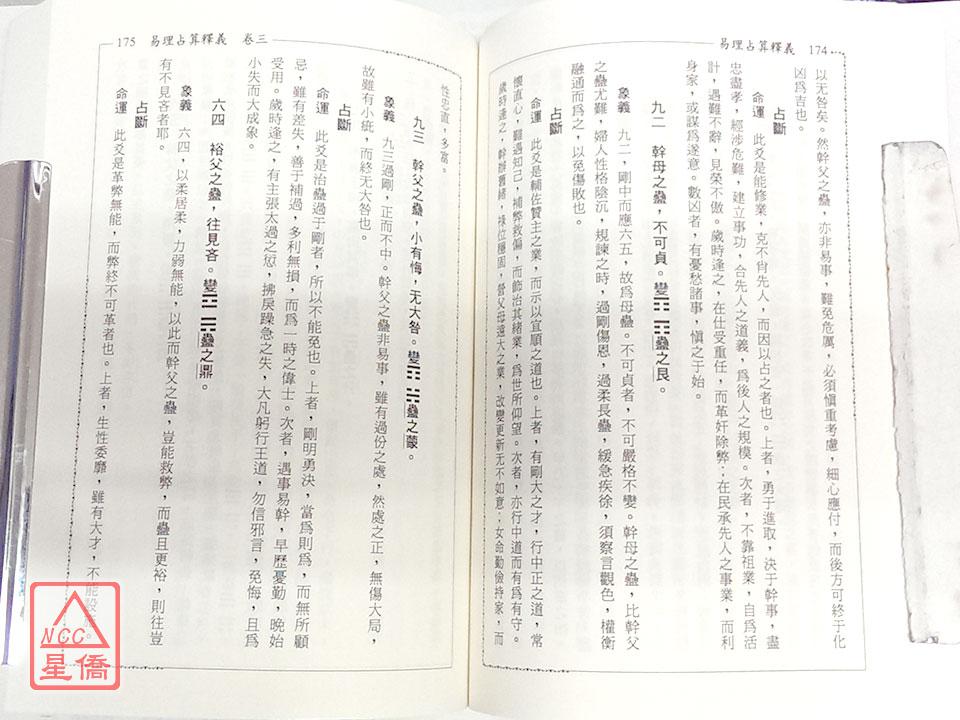 易理占算釋義 174
以无咎矣。然幹父之蠱，亦非易事，難免危厲，必須慎重考慮，細心應付，而後方可終于化
凶爲吉也。
占斷
命運 此爻是能修業，克不肖先人，而因以占之者也。上者，勇于進取，決于幹事，盡
忠盡孝，經涉危難，建立事功，合先人之道義，爲後人之規模。次者，不靠祖業，自爲活
計，遇難不辭，見榮不傲。歲時逢之，在仕受重任，而革奸除弊；在民承先人之事業，而利
身家，或謀爲遂意。數凶者，有憂愁諸事，慎之于始。
九二 幹母之蠱，不可貞。變 蠱之艮。
象義 九二，剛中而應六五，故爲母蠱。不可貞者，不可嚴格不變。幹母之蠱，比幹父
之蠱尤難，婦人性格陰沉，規諫之時，過剛傷恩，過柔長蠱，緩急疾徐，須察言觀色，權衡
融通而爲之，以免傷敗也。
占斷
命運 此爻是輔佐賢主之業，而示以宜順之道也。上者，有剛大之才，行中正之道，常
懷直心，難遇知己，補弊救偏，而飾治其緒業，爲世所仰望。次者，亦行中道而有爲有守。
歲時逢之，幹辦舊緒，祿位穩固，營父母遠大之業，改變更新无不如意；女命勤儉持家，而
175 易理占算釋義 卷三
性忠直，多富。
九三 幹父之蠱，小有悔，无大咎。變 蠱之蒙。
象義 九三過剛，正而不中。幹父之蠱非易事，雖有過份之處，然處之正，無傷大局，
故雖有小疵，而終无大咎也。
占斷
命運 此爻是治蠱過于剛者，所以不能免也。上者，剛明勇決，當爲則爲，而無所顧
忌，雖有差失，善于補過，多利無損，而爲一時之偉士。次者，遇事易幹，早歷憂勤，晚始
受用。歲時逢之，有主張太過之愆，拂戾躁急之失，大凡躬行王道，勿信邪言，免悔，且爲
小失而大成象。
六四 裕父之蠱，往見吝。變 蠱之鼎。
象義 六四，以柔居柔，力弱無能，以此而幹父之蠱，豈能救弊，而蠱且更裕，則往豈
有不見吝者耶。
占斷
命運 此爻是革弊無能，而弊終不可革者也。上者，生性委靡，雖有大才，不能設施。
NCC
星僑